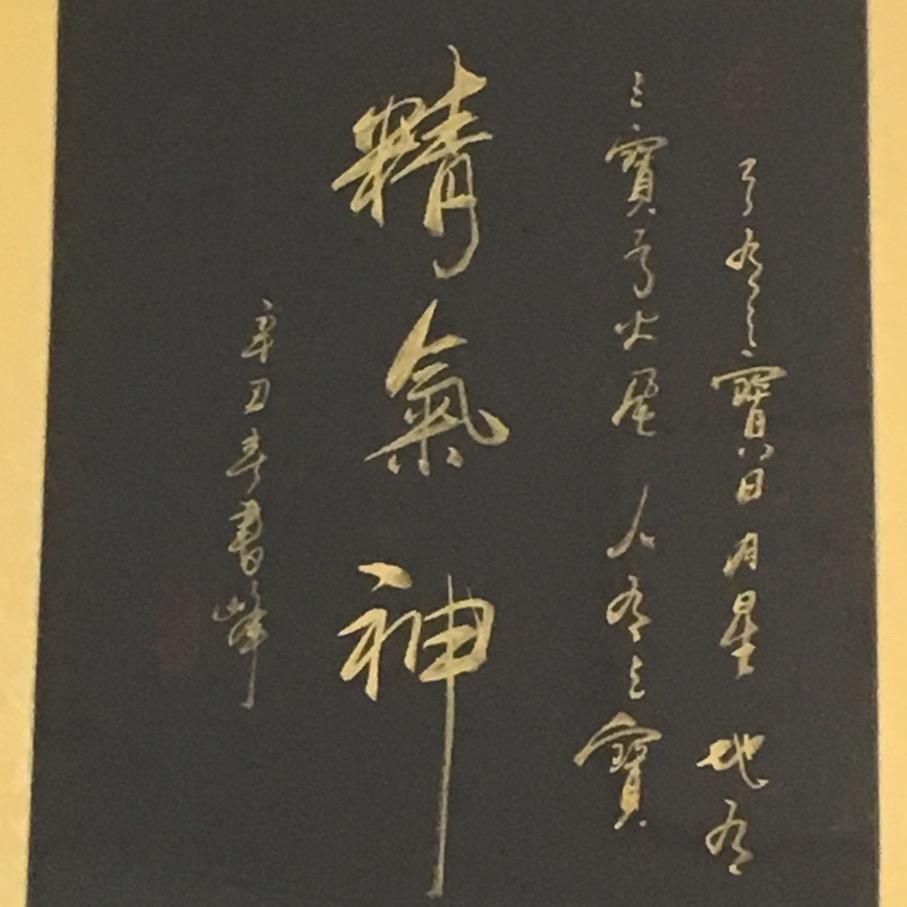 天有三寶日月星 地有
三寶水火風 人有三寶
精氣神
辛丑春書峰